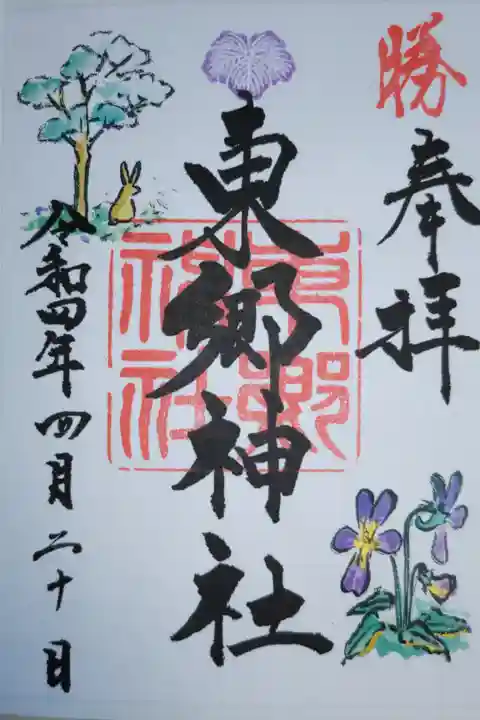 勝
奉拝
東郷神社
東郷
神社
令和四年四月二十日